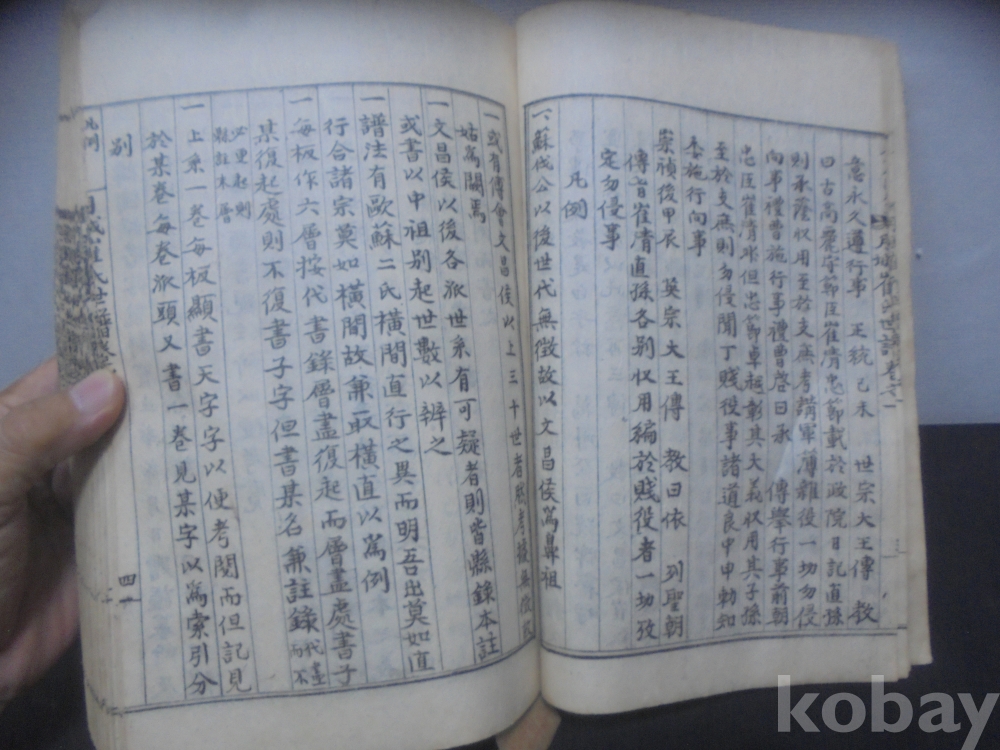 意永久遵行事 正統己未 世宗大王傳 敎
曰古高麗守節臣崔淸忠節載於政院日記直孫
則承蔭收用至於支庶考講軍簿雜役一切勿侵
向事禮曹施行事禮曹啓曰承 傳擧行事前朝
忠臣崔淸非但忠節卓越彰其大義收用其子孫
至於支庶則勿侵閑丁賤役事諸道良中申勅知
委施行向事
崇禎後甲辰 英宗大王傳 敎曰依 列聖朝
傳旨崔淸直孫各別收用編於賤役者一切孜
定勿侵事
凡例
一、蘇伐公以後世代無徵故以文昌侯爲鼻祖
一或有傅會文昌侯以上三十世者
姑爲闕焉
一文昌侯以後各派世系有可疑者則皆懸錄本註
或書以中祖別起世數以辨之
一譜法有歐蘇二氏橫間直行之異而明吾出莫如直
行合諸宗莫如橫間故兼取橫直以爲例
一每板作六層按代書錄層盡復起而層盡處書子
某復起處則不復書子字但書某名兼註錄代盡而不
必更起則懸註末層
一上系一卷每板顯書天字字以便考閱而但記見
於某卷每卷派頭又書一卷見某字以爲索引分
別
凡例
四
kobay